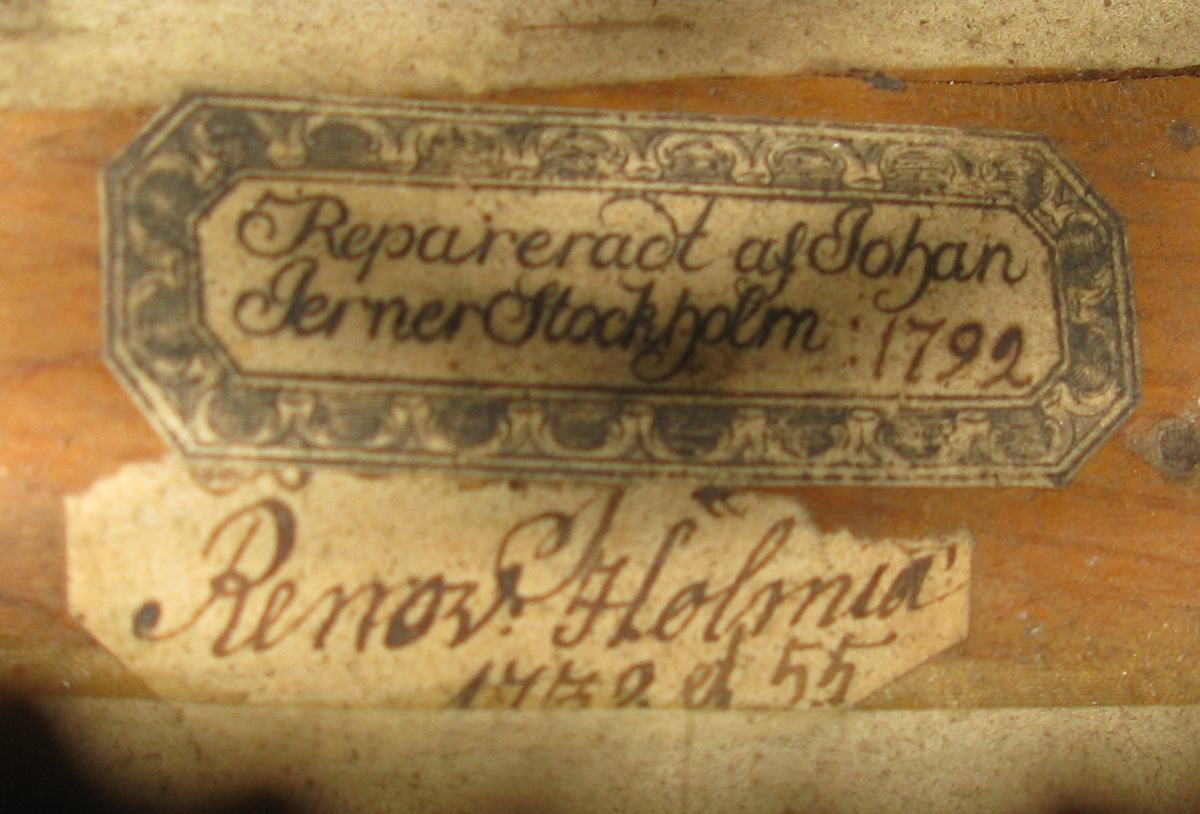 Repareradt af Johan
Jerner Stockholm 1792
Renov: Holmia
1732 & 55